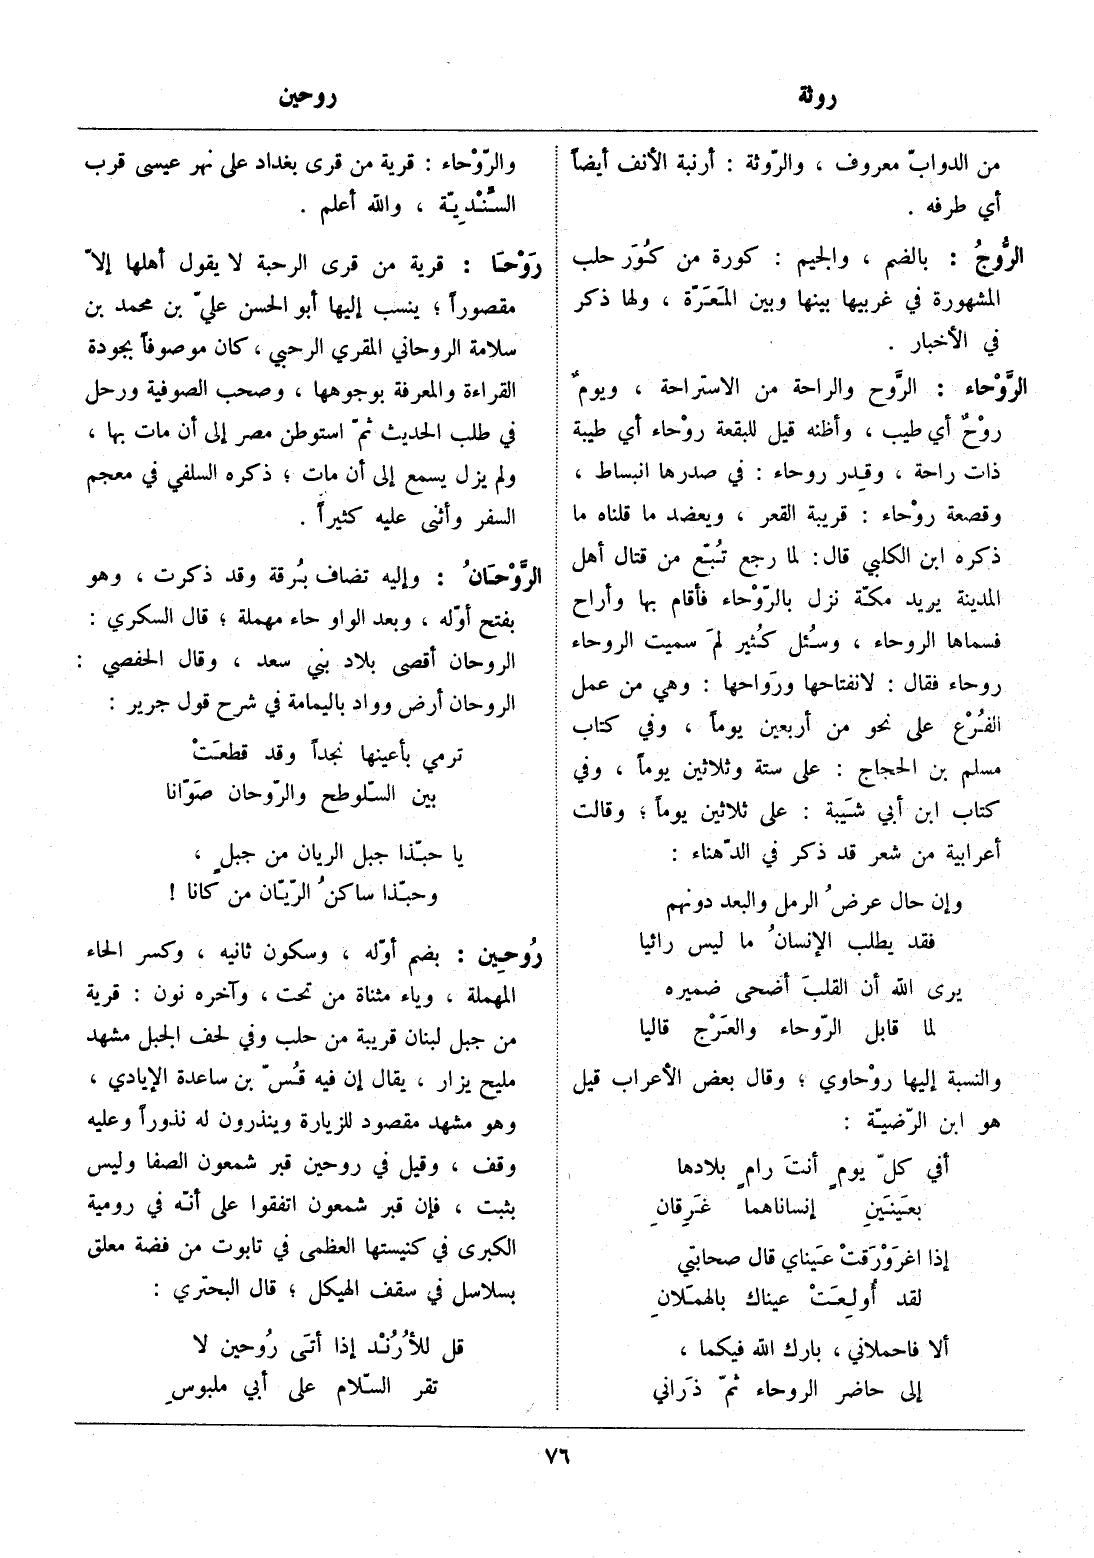 روثة
روحين
من الدوابّ معروف ، والرّوثة : أرنبة الأنف أيضاً
أي طرفه .
الرُّوجُ : بالضم ، والجيم : كورة من كُوَر حلب
المشهورة في غربيها بينها وبين المَعَرّة ، ولها ذكر
في الأخبار .
الرَّوْحاء : الرَّوح والراحة من الاستراحة ، ويومٌ
روْحٌ أي طيب ، وأظنه قيل للبقعة روْحاء أي طيبة
ذات راحة ، وقِدر روحاء : في صدرها انبساط ،
وقصعة روْحاء : قريبة القعر ، ويعضد ما قلناه ما
ذكره ابن الكلبي قال : لما رجع تُبّع من قتال أهل
المدينة يريد مكّة نزل بالرّوْحاء فأقام بها وأراح
فسماها الروحاء ، وسُئل كُثير لمَ سميت الروحاء
روحاء فقال : لانفتاحها ورَواحها : وهي من عمل
الفُرْع على نحو من أربعين يوماً ، وفي كتاب
مسلم بن الحجاج : على ستة وثلاثين يوماً ، وفي
كتاب ابن أبي شَيبة : على ثلاثين يوماً ؛ وقالت
أعرابية من شعر قد ذكر في الدّهناء :
وإن حال عرضُ الرمل والبعد دونهم
فقد يطلب الإنسانُ ما ليس رائيا
يرى الله أن القلبَ أضحى ضميره
لما قابل الرّوحاء والعَرْج قاليا
والنسبة إليها روْحاوي ؛ وقال بعض الأعراب قيل
هو ابن الرّضيّة :
أفي كلّ يومٍ أنتَ رامٍ بلادها
بعَينَينِ إنساناهما غَرِقانِ
إذا اغرَوْرَقتْ عَيناي قال صحابتي
لقد أُولِعَتْ عيناك بالهمَلانِ
ألا فاحملاني ، بارك الله فيكما ،
إلى حاضر الروحاء ثمّ ذَراني
والرّوْحاء : قرية من قرى بغداد على نهر عيسى قرب
السّنْدِيّة ، والله أعلم .
رَوْحَا : قرية من قرى الرحبة لا يقول أهلها إلاّ
مقصوراً ؛ ينسب إليها أبو الحسن عليّ بن محمد بن
سلامة الروحاني المقري الرحبي ، كان موصوفاً بجودة
القراءة والمعرفة بوجوهها ، وصحب الصوفية ورحل
في طلب الحديث ثمّ استوطن مصر إلى أن مات بها ،
ولم يزل يسمع إلى أن مات ؛ ذكره السلفي في معجم
السفر وأثنى عليه كثيراً .
الرَّوْحَانُ : وإليه تضاف بُرقة وقد ذكرت ، وهو
بفتح أوّله ، وبعد الواو حاء مهملة ؛ قال السكري :
الروحان أقصى بلاد بني سعد ، وقال الحفصي :
الروحان أرض وواد باليمامة في شرح قول جرير :
ترمي بأعينها نجداً وقد قطعَتْ
بين السّلوطح والرّوحان صَوّانا
يا حبّذا جبل الريان من جبلٍ ،
وحبّذا ساكنُ الرّيّان من كانا !
رُوحِين : بضم أوّله ، وسكون ثانيه ، وكسر الحاء
المهملة ، وياء مثناة من تحت ، وآخره نون : قرية
من جبل لبنان قريبة من حلب وفي لحف الجبل مشهد
مليح يزار ، يقال إن فيه قُسّ بن ساعدة الإيادي ،
وهو مشهد مقصود للزيارة وينذرون له نذوراً وعليه
وقف ، وقيل في روحين قبر شمعون الصفا وليس
بثبت ، فإن قبر شمعون اتفقوا على أنّه في رومية
الكبرى في كنيستها العظمى في تابوت من فضة معلق
بسلاسل في سقف الهيكل ؛ قال البحتري :
قل للأُرُنْد إذا أتَى رُوحين لا
تقر السّلام على أبي ملبوسِ
٧٦